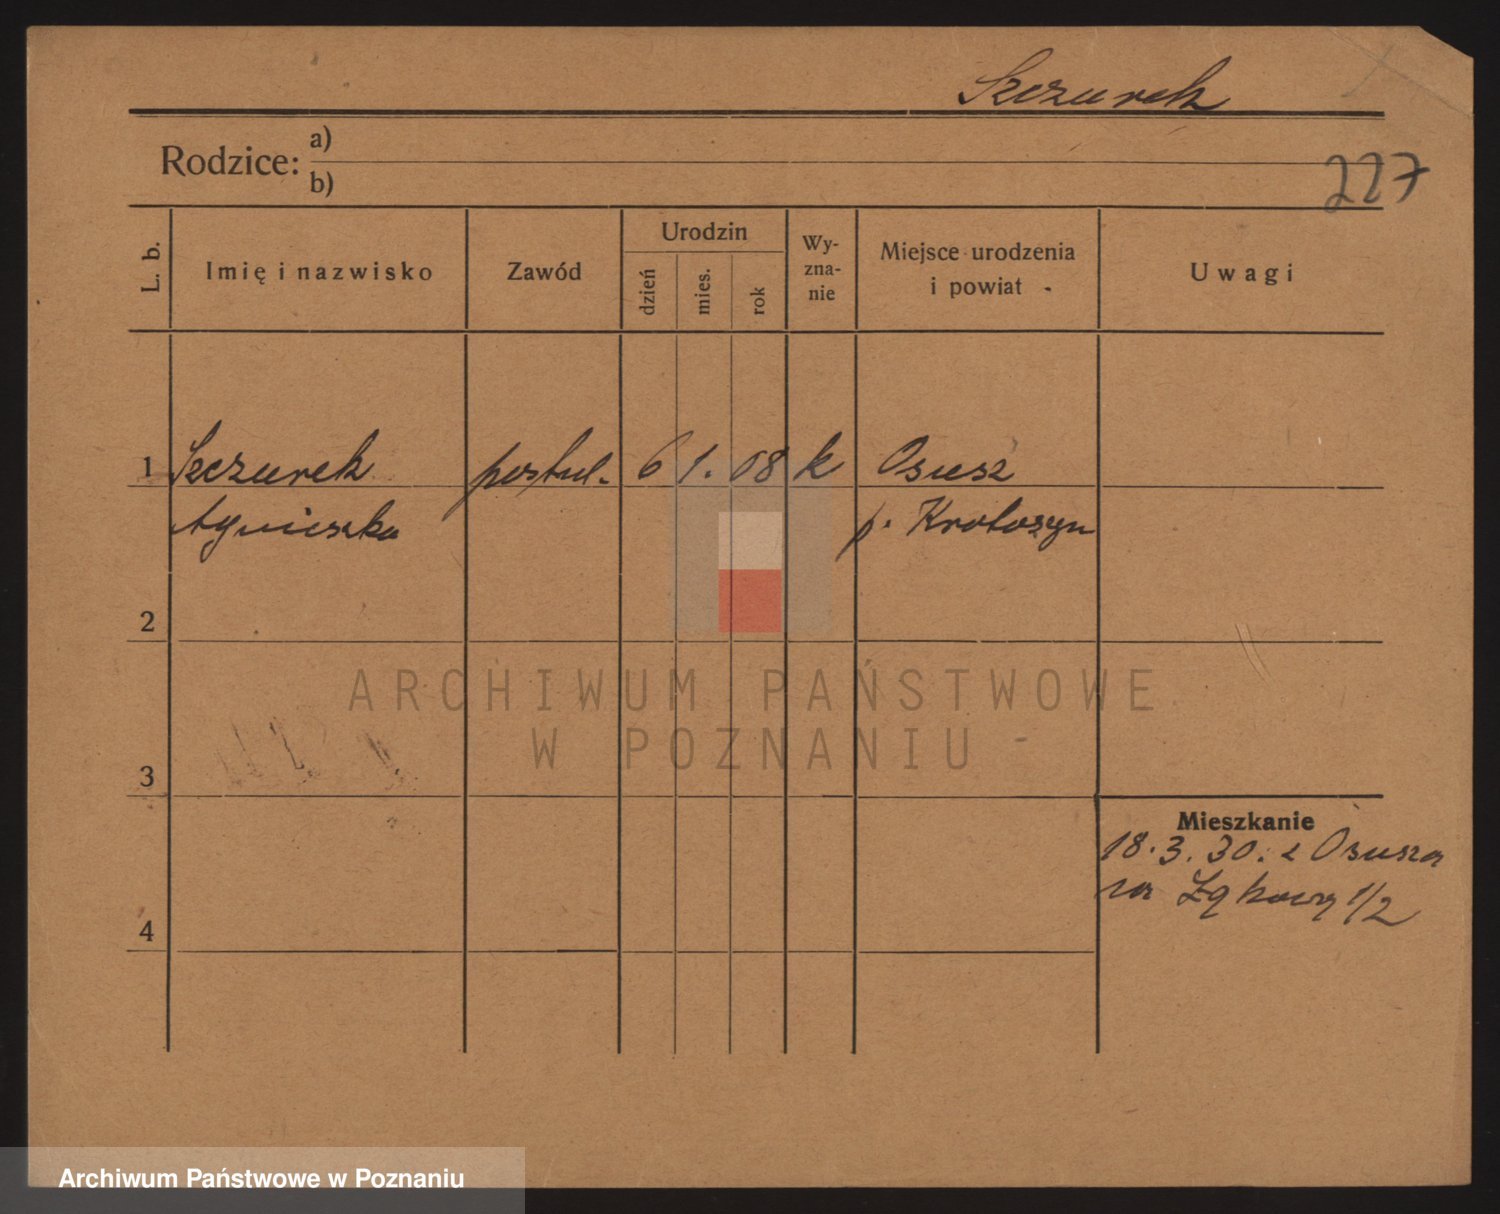 Szczurek
Rodzice: a)
b)
227
L. b.
Imię i nazwisko
Zawód
Urodzin
dzień
mies.
rok
Wy-
zna-
nie
Miejsce urodzenia
i powiat
Uwagi
1 Szczurek postul. 6 1. 08 k Osusz
Agnieszka p. Krotoszyn
2
ARCHIWUM PAŃSTWOWE
W POZNANIU
3
Mieszkanie
18.3.30. z Osusza
na Łąkową 1/2
4
Archiwum Państwowe w Poznaniu